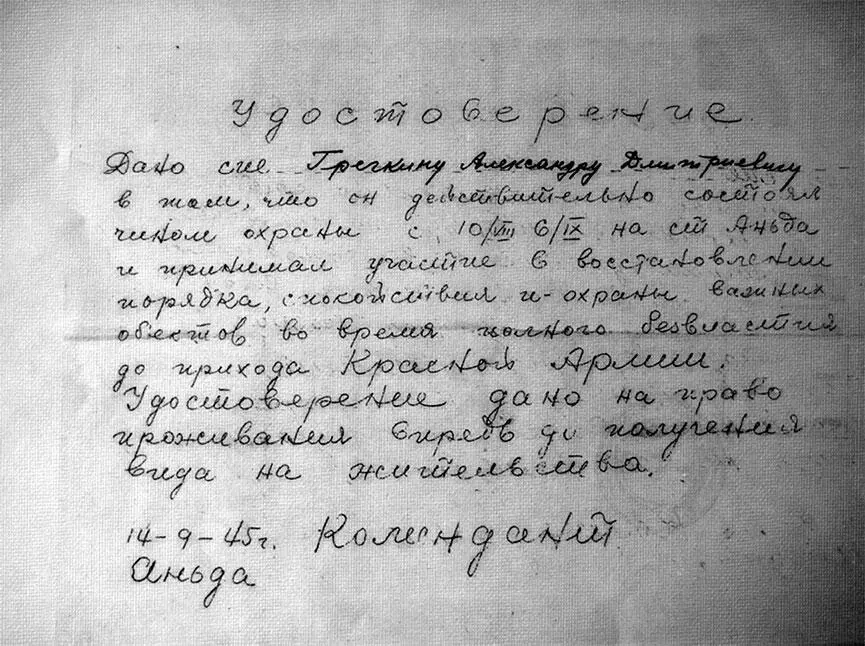 Удостоверение.
Дано сие Гречкину Александру Дмитриевичу
в том, что он действительно состоял
чином охраны с 10/VIII 6/IX на ст Аньда
и принимал участие в восстановлении
порядка, спокойствия и охраны важных
обектов во время полного безвластия
до прихода Красной Армии.
Удостоверение дано на право
проживания впредь до получения
вида на жительства.
14-9-45г. Комендант
Аньда